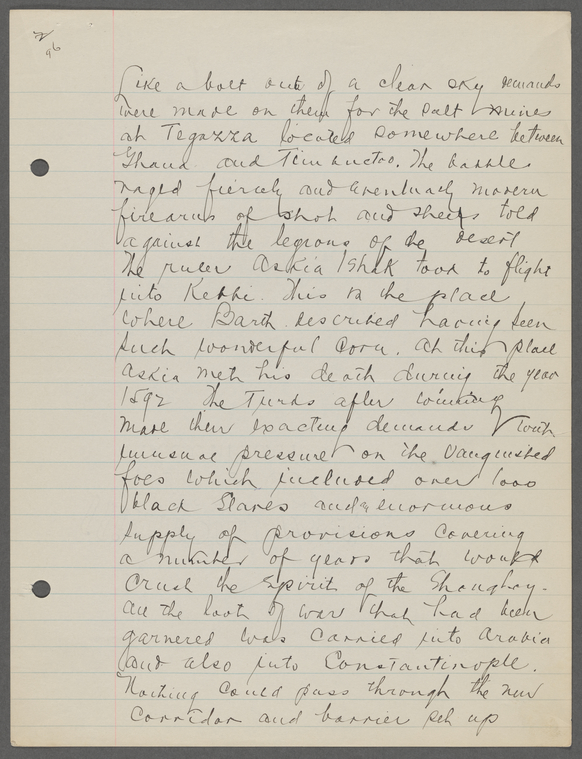 2
96
Like a bolt out of a clear sky demands
were made on them for the salt mines
at Tegazza located somewhere between
Ghana and Timbuctoo. The battle
raged fiercely and eventually modern
firearms of shot and shells told
against the legions of the desert
The ruler Askia Ishak took to flight
into Kebbi. This is the place
where Barth described having seen
such wonderful corn. At this place
Askia meth his death during the year
1592 The Turks after winning
made their exacting demands with
unusual pressure on the vanquished
foes which included over 1000
black slaves and enormous
supply of provisions covering
a number of years that would
crush the spirit of the Shonghoy-
All the loot of war that had been
garnered was carried into Arabia
and also into Constantinople.
Nothing could pass through the new
corridor and barrier set up